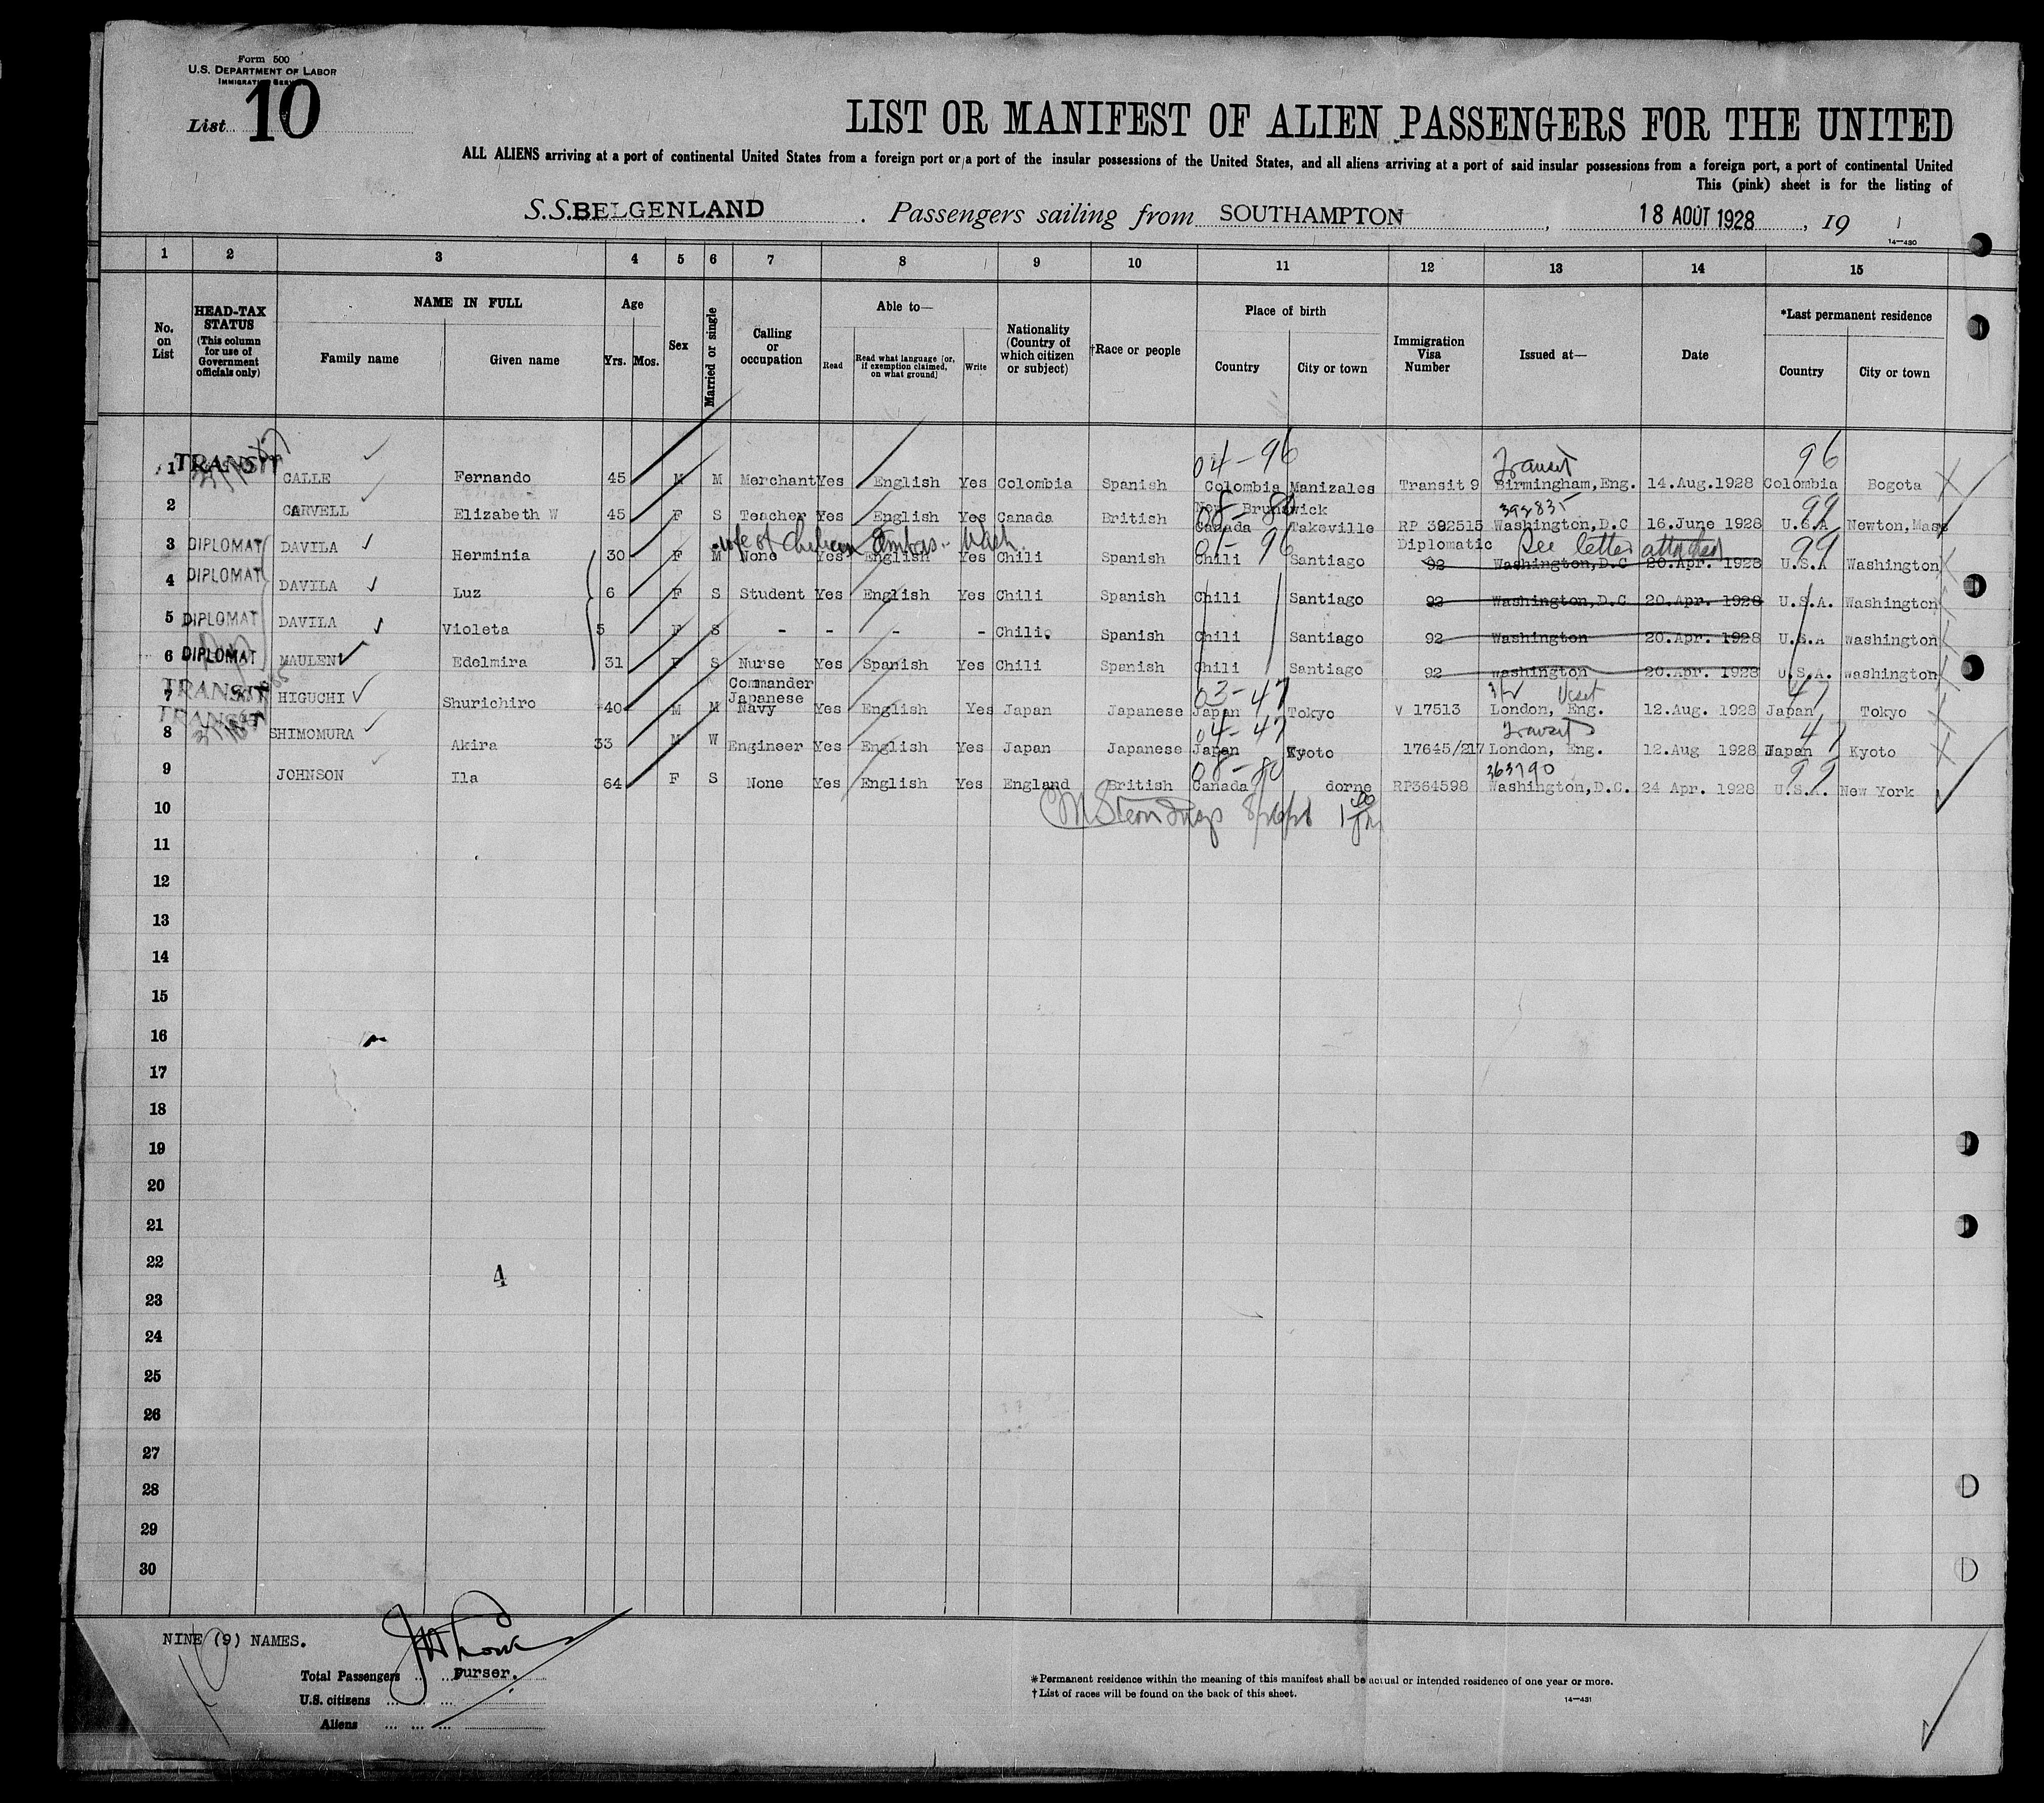 Form 500
U.S. DEPARTMENT OF LABOR
IMMIGRATION SERVICE
List 10
LIST OR MANIFEST OF ALIEN PASSENGERS FOR THE UNITED
ALL ALIENS arriving at a port of continental United States from a foreign port or a port of the insular possessions of the United States, and all aliens arriving at a port of said insular possessions from a foreign port, a port of continental United
This (pink) sheet is for the listing of
S.S. BELGENLAND . Passengers sailing from SOUTHAMPTON , 18 AOÛT 1928 , 19
14—430
1 2 3 4 5 6 7 8 9 10 11 12 13 14 15
No. on List
HEAD-TAX STATUS (This column for use of Government officials only)
NAME IN FULL
Family name Given name
Age
Yrs. Mos.
Sex
Married or single
Calling or occupation
Able to—
Read Read what language [or, if exemption claimed, on what ground] Write
Nationality (Country of which citizen or subject)
†Race or people
Place of birth
Country City or town
Immigration Visa Number
Issued at—
Date
*Last permanent residence
Country City or town
04-96 Transit 96
1 TRANSIT CALLE Fernando 45 M M Merchant Yes English Yes Colombia Spanish Colombia Manizales Transit 9 Birmingham, Eng. 14.Aug.1928 Colombia Bogota
08-80 New Brunswick 392835 99
2 CARVELL Elizabeth W 45 F S Teacher Yes English Yes Canada British Canada Takeville RP 392515 Washington,D.C 16.June 1928 U.S.A Newton,Mass
wife of Chilean Ambas- Wash. 01-96 Diplomatic See letter attached 99
3 DIPLOMAT DAVILA Herminia 30 F M None Yes English Yes Chili Spanish Chili Santiago 92 Washington,D.C 20.Apr. 1928 U.S.A Washington
4 DIPLOMAT DAVILA Luz 6 F S Student Yes English Yes Chili Spanish Chili Santiago 92 Washington,D.C 20.Apr. 1928 U.S.A. Washington
5 DIPLOMAT DAVILA Violeta 5 F S - - - - Chili. Spanish Chili Santiago 92 Washington 20.Apr. 1928 U.S.A Washington
6 DIPLOMAT MAULEN Edelmira 31 F S Nurse Yes Spanish Yes Chili Spanish Chili Santiago 92 Washington 20.Apr. 1928 U.S.A. Washington
03-47 47
7 TRANSIT HIGUCHI Shurichiro 40 M M Commander Japanese Navy Yes English Yes Japan Japanese Japan Tokyo V 17513 London, Eng. 12.Aug. 1928 Japan Tokyo
04-47 Transit 47
8 TRANSIT SHIMOMURA Akira 33 M W Engineer Yes English Yes Japan Japanese Japan Kyoto 17645/217 London, Eng. 12.Aug 1928 Japan Kyoto
08-80 363790 99
9 JOHNSON Ila 64 F S None Yes English Yes England British Canada dorne RP364598 Washington,D.C. 24 Apr. 1928 U.S.A. New York
10
11
12
13
14
15
16
17
18
19
20
21
22
4
23
24
25
26
27
28
29
30
NINE (9) NAMES.
Total Passengers Purser.
U.S. citizens
Aliens
*Permanent residence within the meaning of this manifest shall be actual or intended residence of one year or more.
†List of races will be found on the back of this sheet.
14—431